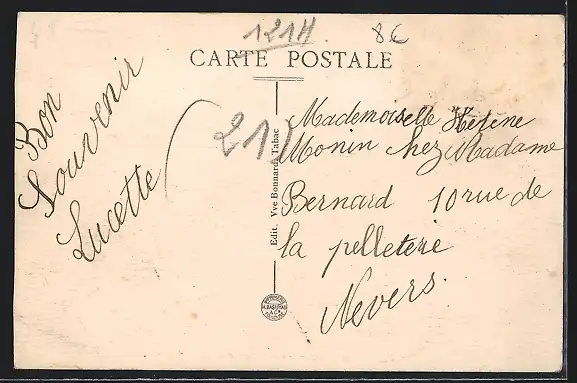 1214
8€
CARTE POSTALE
Bon
Souvenir
Lucette
211
Mademoiselle Helene
Monin chez Madame
Bernard 10 rue de
la pelleterie
Nevers.
Edit. Vve Bonnard, Tabac